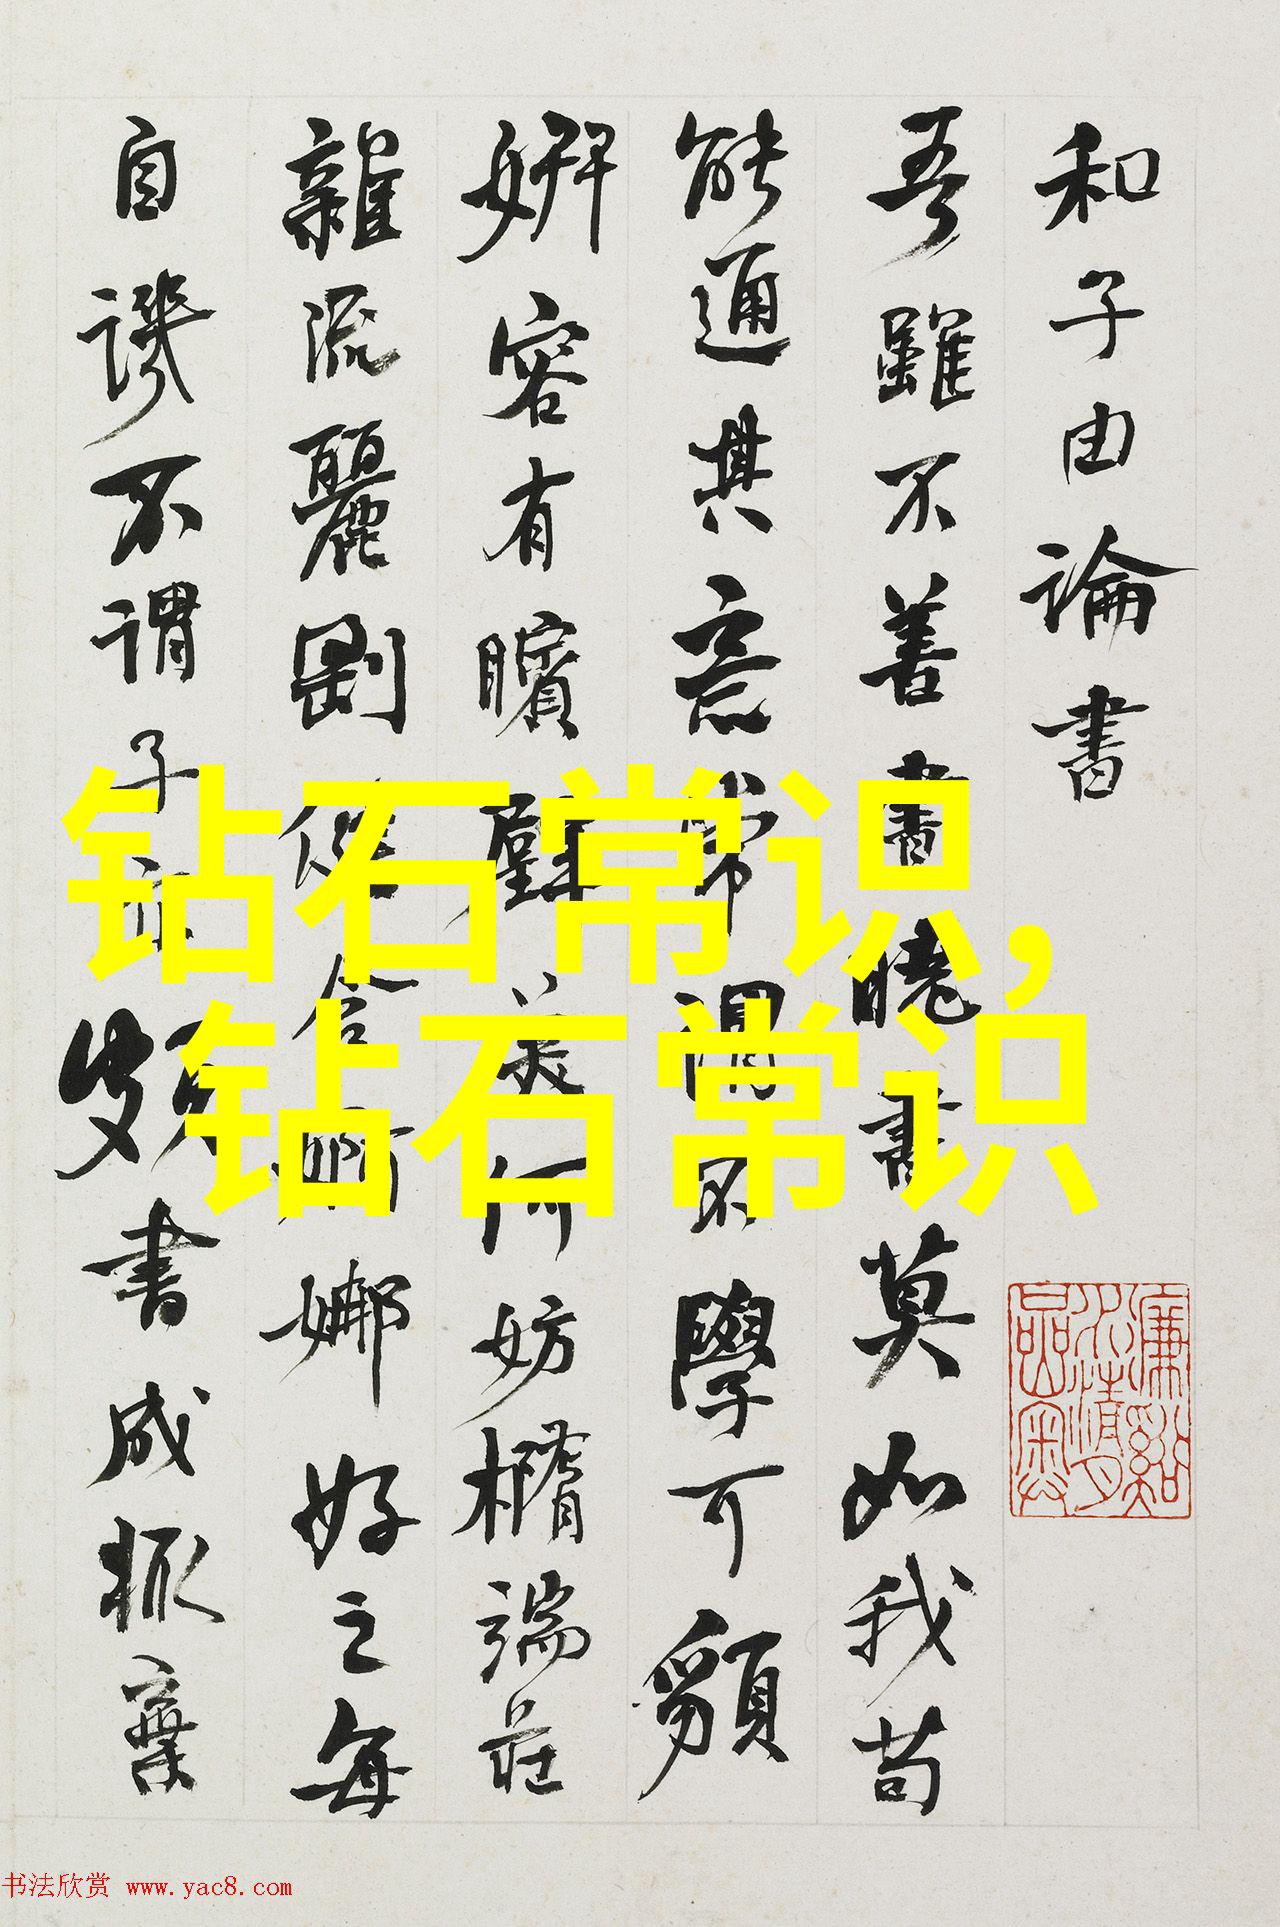 和子由論書
吾雖不善書曉書莫如我苟
能通其意常謂不學可䫉
妍容有矉璧美何妨橢端莊
雜流麗剛健含婀娜好之每
自譏不謂子亦頗書成輒棄
钻石常识,
钻石常识
书法欣赏 www.yac8.com